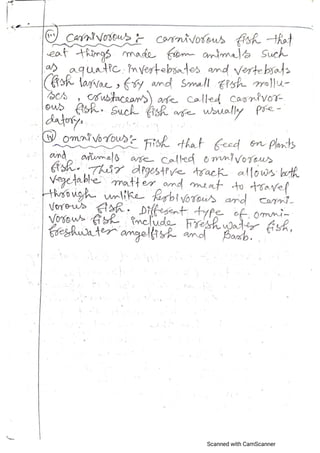 (iii) Carnivorous :- carnivorous fish that
eat things made from animals such
as aquatic invertebrates and vertebrats
(fish larvae, fry and small fish mollu-
scs, crustaceans) are called carnivor-
ous fish. Such fish are usually pre-
datory.
(iv) omnivorous:- Fish that feed on plants
and animals are called omnivorous
fish. Their digestive track allows both
vegetable matter and meat to travel
through unlike herbivorous and carni-
vorous fish. Different type of omni-
vorous fish include Freshwater fish,
freshwater angelfish and Barb.
Scanned with CamScanner